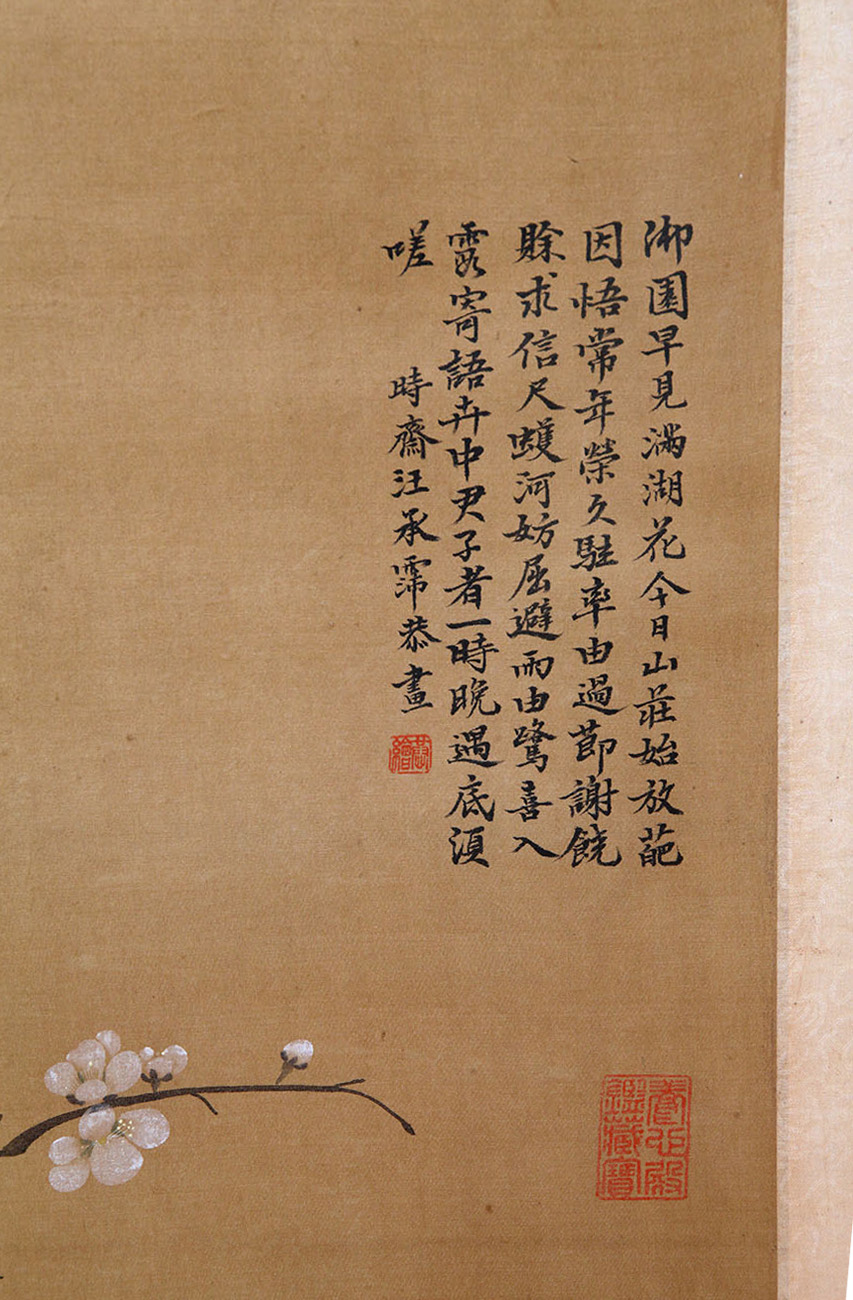 御園早見滿湖花今日山莊始放葩
因悟常年榮久駐率由過節謝饒
賒求信尺蠖河妨屈避雨由鷺喜入
霞寄語卉中尹子者一時晚遇底須
嗟
時齋汪承霈恭畫
恭繪
養心殿
鑑藏寶